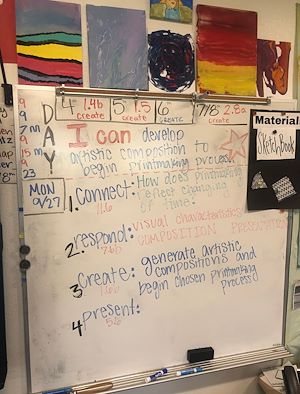 4 1.4b 5 1.5 6 7/8 2.8a
create create CREATE create
DAY
I can develop
artistic composition to
begin printmaking process
Materials
Sketchbook
MON
9/27
1. Connect: How does printmaking
reflect changing
of time?
2. respond: visual characteristics
COMPOSITION PRESENTATION
3. Create: generate artistic
compositions and
begin chosen printmaking
process
4. present: